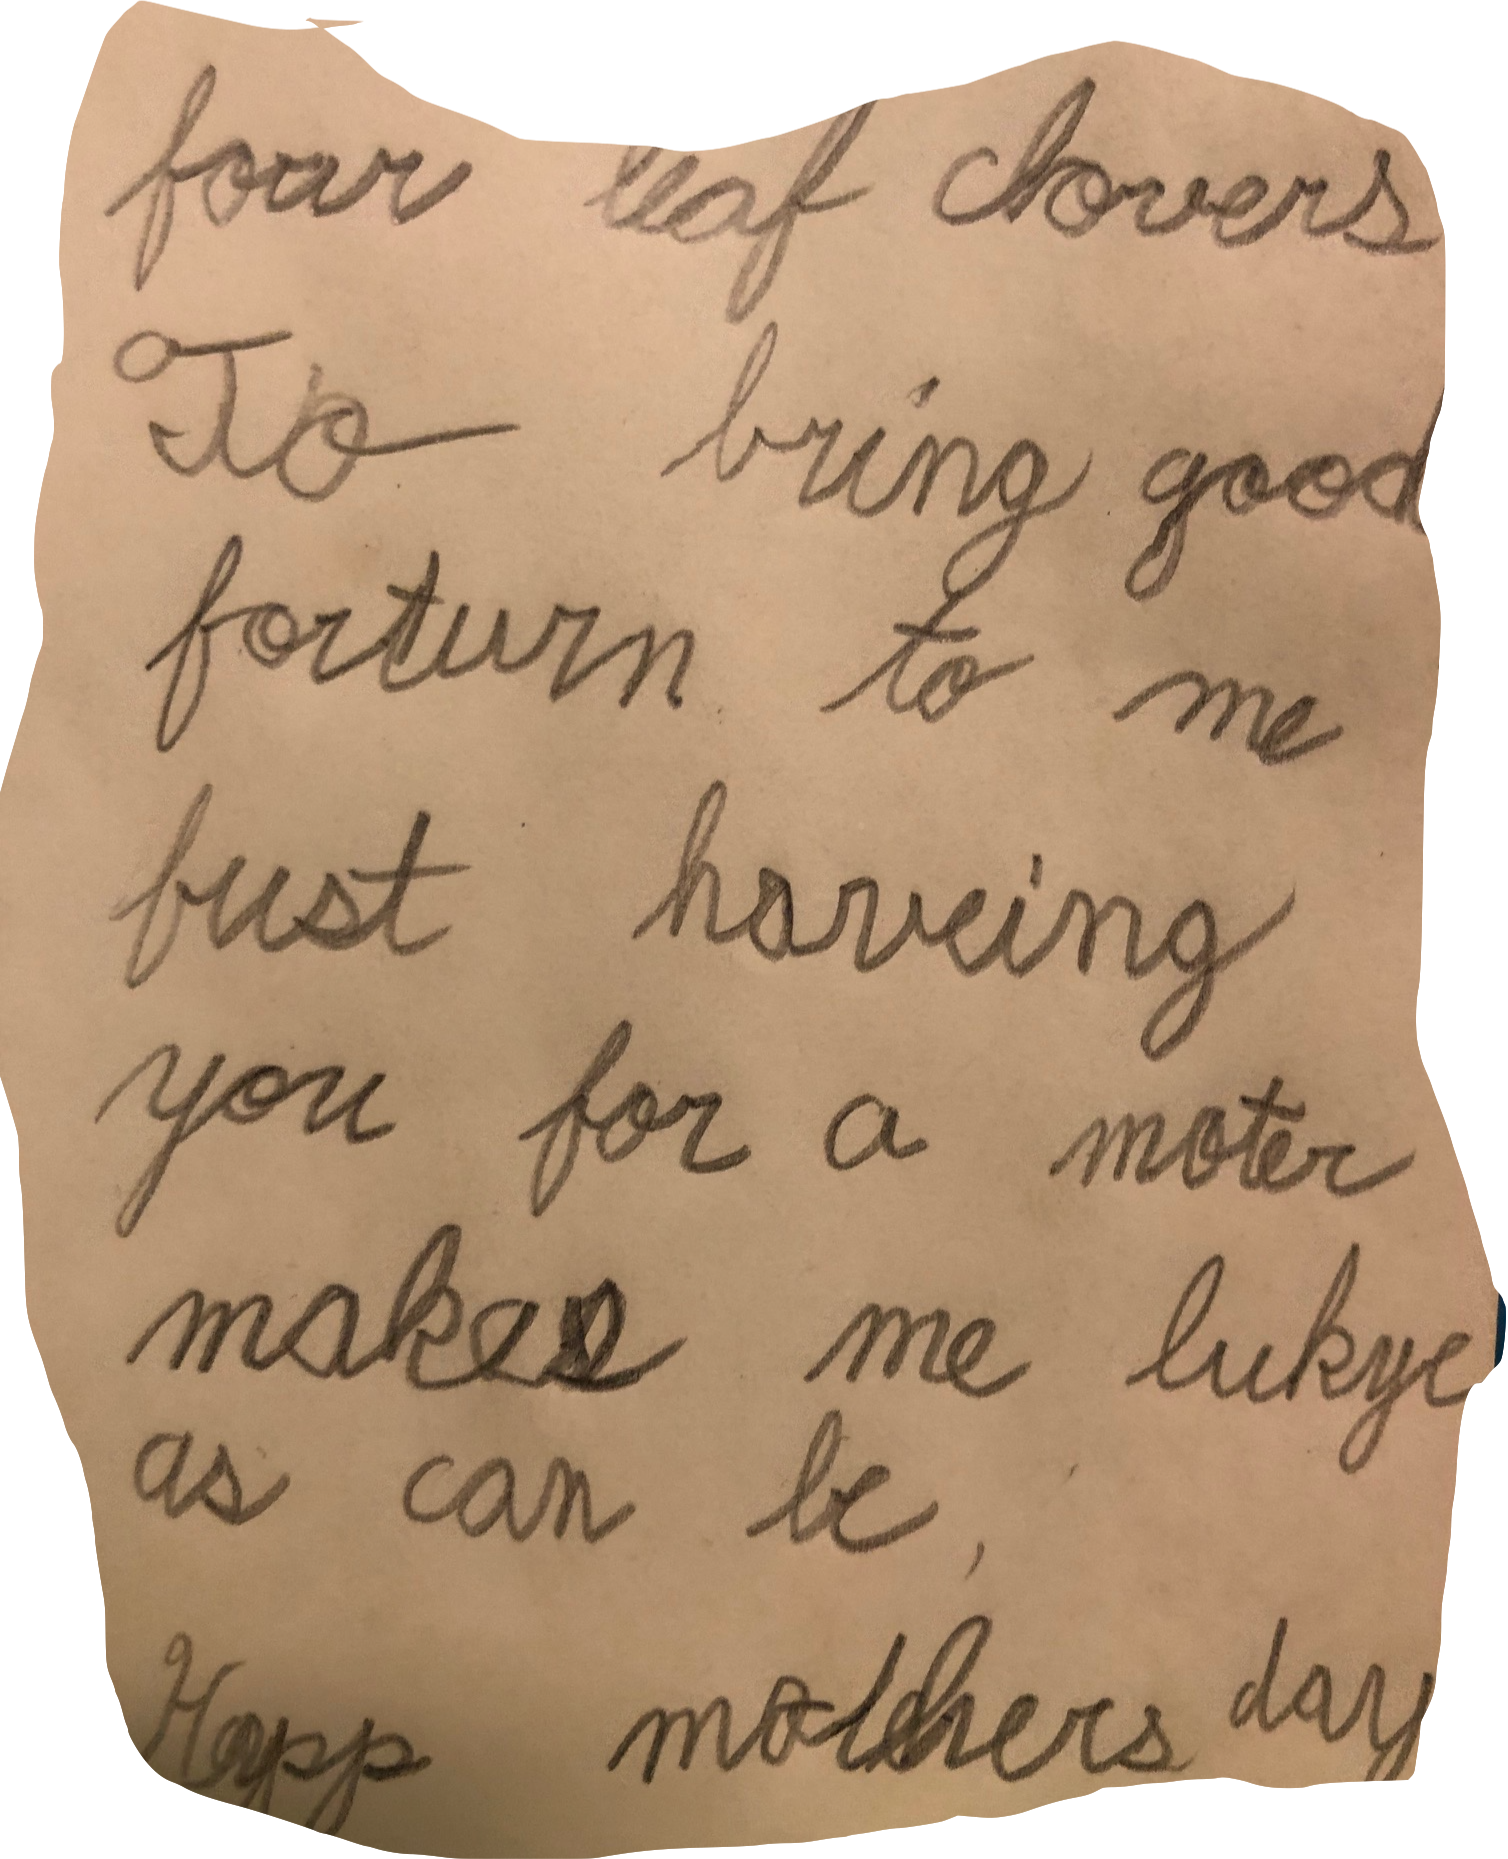 four leaf clovers
To bring good
forturn to me
bust haveing
you for a moter
makes me lukye
as can be,
Happ mothers day